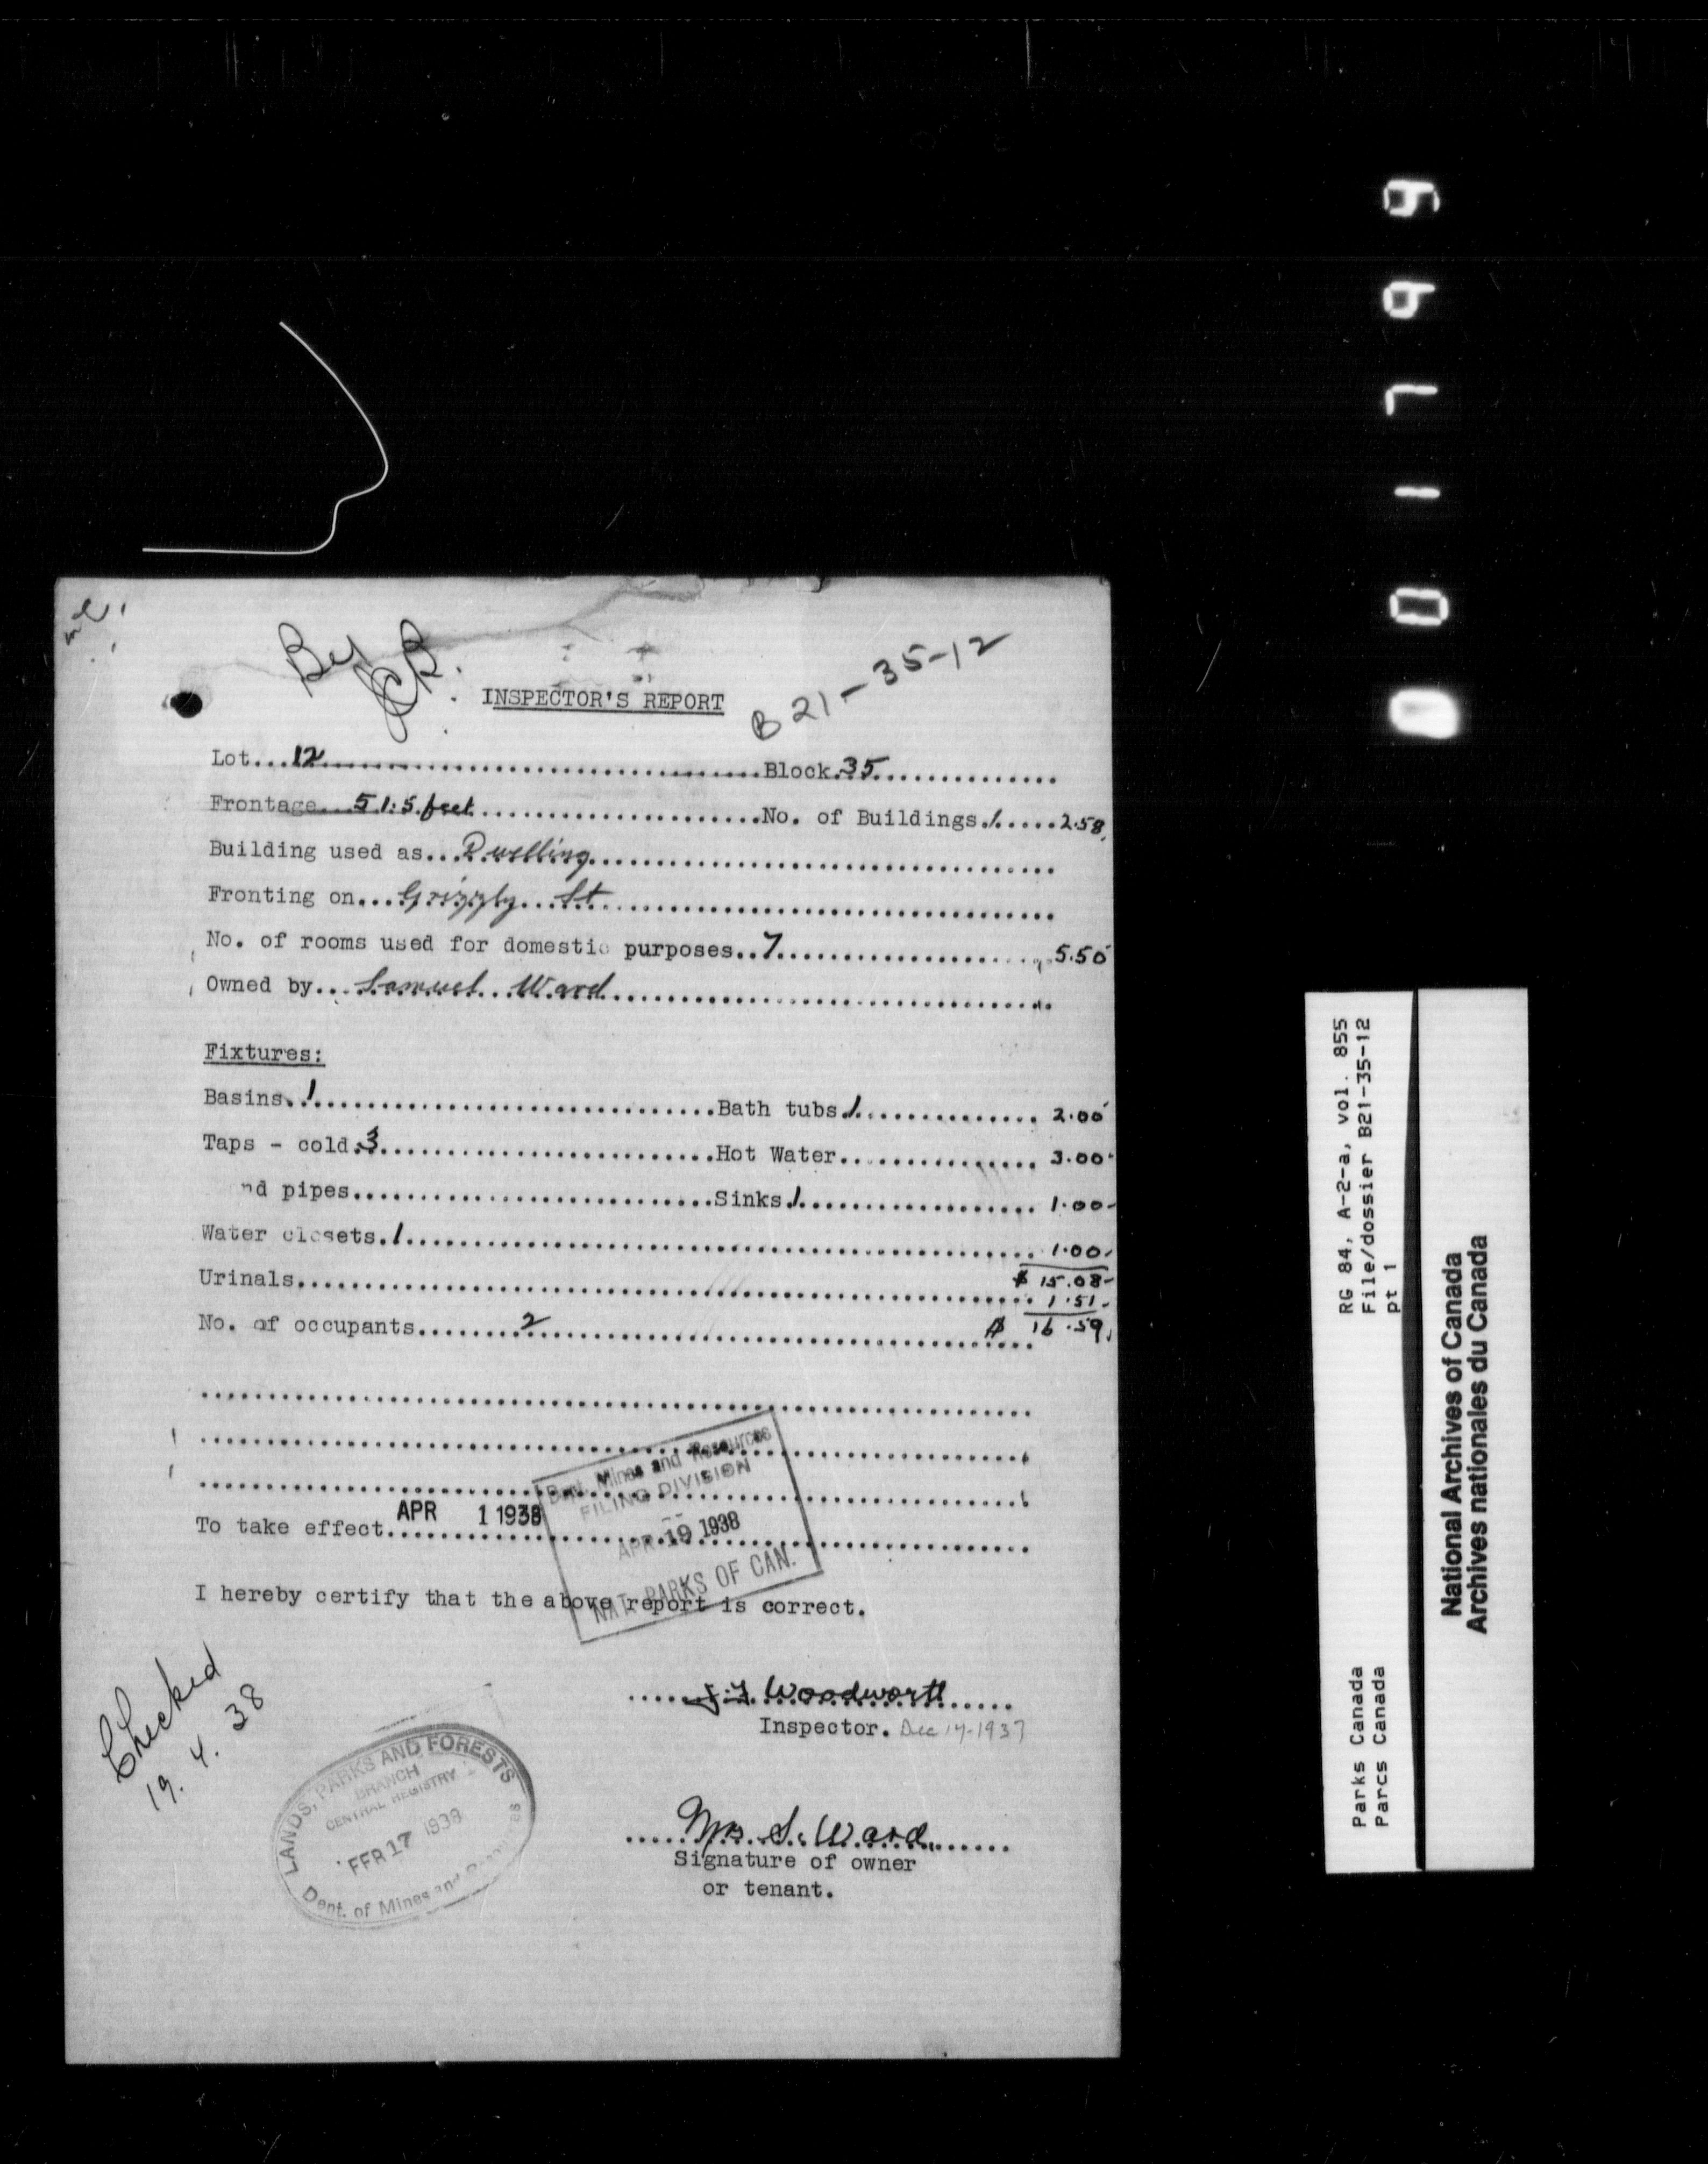 B 21-35-12
INSPECTOR'S REPORT
Lot...12..........Block.35..........
Frontage...51.5 feet..........No. of Buildings.1.....2.58
Building used as...Dwelling..........
Fronting on...Grizzly...St..........
No. of rooms used for domestic purposes..7..........5.50
Owned by...Samuel Ward..........
Fixtures:
Basins..1..........Bath tubs.1..........2.00
Taps - cold.3..........Hot Water..........3.00
nd pipes..........Sinks.1..........1.00
Water closets.1..........1.00
Urinals..........$ 15.08
1.51
No. of occupants.......2..........$ 16.59
Dept. Mines and Resources
FILING DIVISION
APR 19 1938
NAT. PARKS OF CAN.
To take effect APR 1 1938
I hereby certify that the above report is correct.
Checked
19. 4. 38
Woodworth
Inspector. Dec 14-1937
LANDS, PARKS AND FORESTS
BRANCH
CENTRAL REGISTRY
FEB 17 1938
Dept. of Mines and Resources
Mrs. S. Ward
Signature of owner
or tenant.
RG 84, A-2-a, vol. 855
File/dossier B21-35-12
pt 1
Parks Canada
Parcs Canada
National Archives of Canada
Archives nationales du Canada